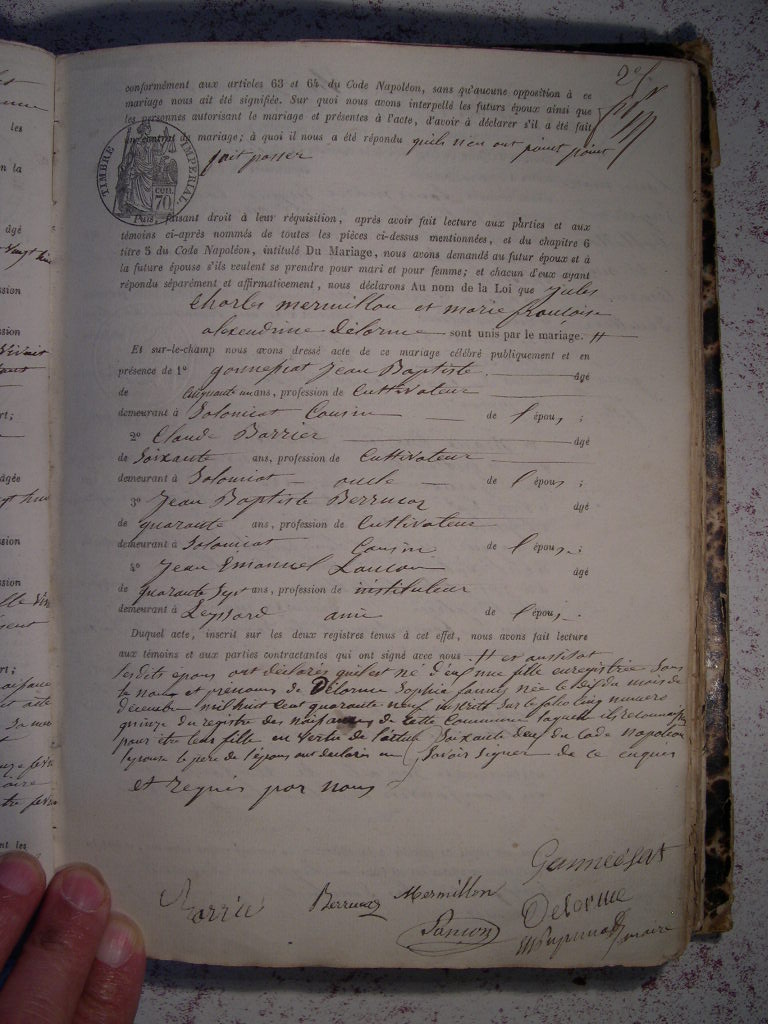 conformément aux articles 63 et 64 du Code Napoléon, sans qu'aucune opposition à ce
mariage nous ait été signifiée. Sur quoi nous avons interpellé les futurs époux ainsi que
les personnes autorisant le mariage et présentes à l'acte, d'avoir à déclarer s'il a été fait
un contrat de mariage; à quoi il nous a été répondu quils n'en ont point point
fait passer
TIMBRE IMPERIAL
CEN. 70
Puis, faisant droit à leur réquisition, après avoir fait lecture aux parties et aux
témoins ci-après nommés de toutes les pièces ci-dessus mentionnées, et du chapitre 6
titre 5 du Code Napoléon, intitulé Du Mariage, nous avons demandé au futur époux et à
la future épouse s'ils veulent se prendre pour mari et pour femme; et chacun d'eux ayant
répondu séparément et affirmativement, nous déclarons Au nom de la Loi que jules
Charles mermillon et marie françoise
alexendrine Delorme sont unis par le mariage. #
Et sur-le-champ nous avons dressé acte de ce mariage célébré publiquement et en
présence de 1° jean Baptiste âgé
de cinquante un ans, profession de Cultivateur
demeurant à Solomiat Cousin de l'époux;
2° Claude Barrier âgé
de Soixante ans, profession de Cultivateur
demeurant à Solomiat oncle de l'époux;
3° Jean Baptiste Berrucaz âgé
de quarante ans, profession de Cultivateur
demeurant à Solomiat Cousin de l'épou ;
4° Jean Emanuel âgé
de quarante Sept ans, profession de instituteur
demeurant à Leyssard ami de l'épou .
Duquel acte, inscrit sur les deux registres tenus à cet effet, nous avons fait lecture
aux témoins et aux parties contractantes qui ont signé avec nous. # et aussitot
lesdits epoux ont déclarés quil est né d'eux une fille enregistrée Sous
le nom et prenoms de Delorme Sophie fanny née le dix du mois de
décembre mil huit cent quarante neuf inscrite Sur le folio cinq numero
quinze du registre des naissances de cette Commune laquelle ils reconnaissent
pour être leur fille en vertu de l'article Soixante deux du Code Napoleon
lepouse le pere de l'époux ont declarés ne Savoir Signer de ce enquis
et requis par nous
Berrucaz Mermillon
Delorme
maire